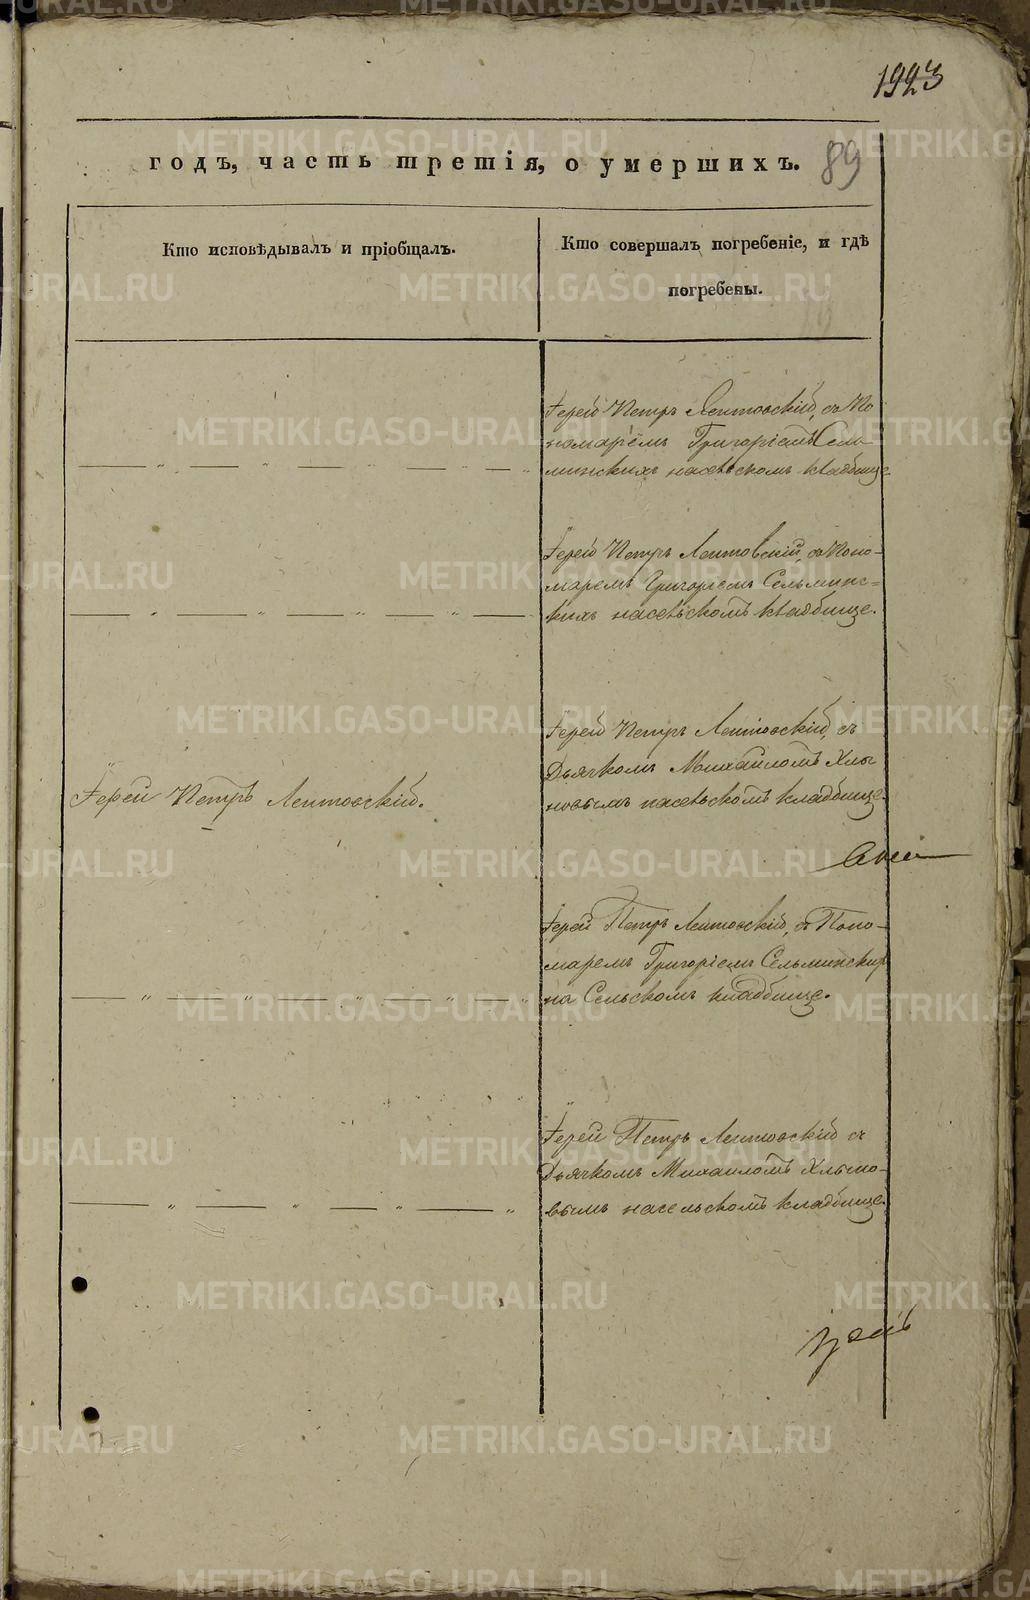 1923
годъ, часть третія, о умершихъ. 89
Кто исповѣдывалъ и пріобщалъ.
Кто совершалъ погребеніе, и гдѣ
погребены.
Іерей Петръ Лептовскій, съ По
номарёмъ Григоріемъ Сель-
минскихъ насельскомъ кладбище
Іерей Петръ Лептовскій, съ Поно-
маремъ Григоріемъ Сельминс=
кихъ насельскомъ кладбище.
Іерей Петръ Лептовскій, съ
Дьячкомъ Михайломъ Хлы
Іерей Петръ Лептовскій.
новымъ насельскомъ кладбище.
Іерей Петръ Лептовскій, съ Поно-
маремъ Григоріемъ Сельминскихъ
на Сельскомъ кладбище.
Іерей Петръ Лептовскій съ
Дьячкомъ Михаиломъ Хлыно-
вымъ насельскомъ кладбище.
METRIKI.GASO-URAL.RU